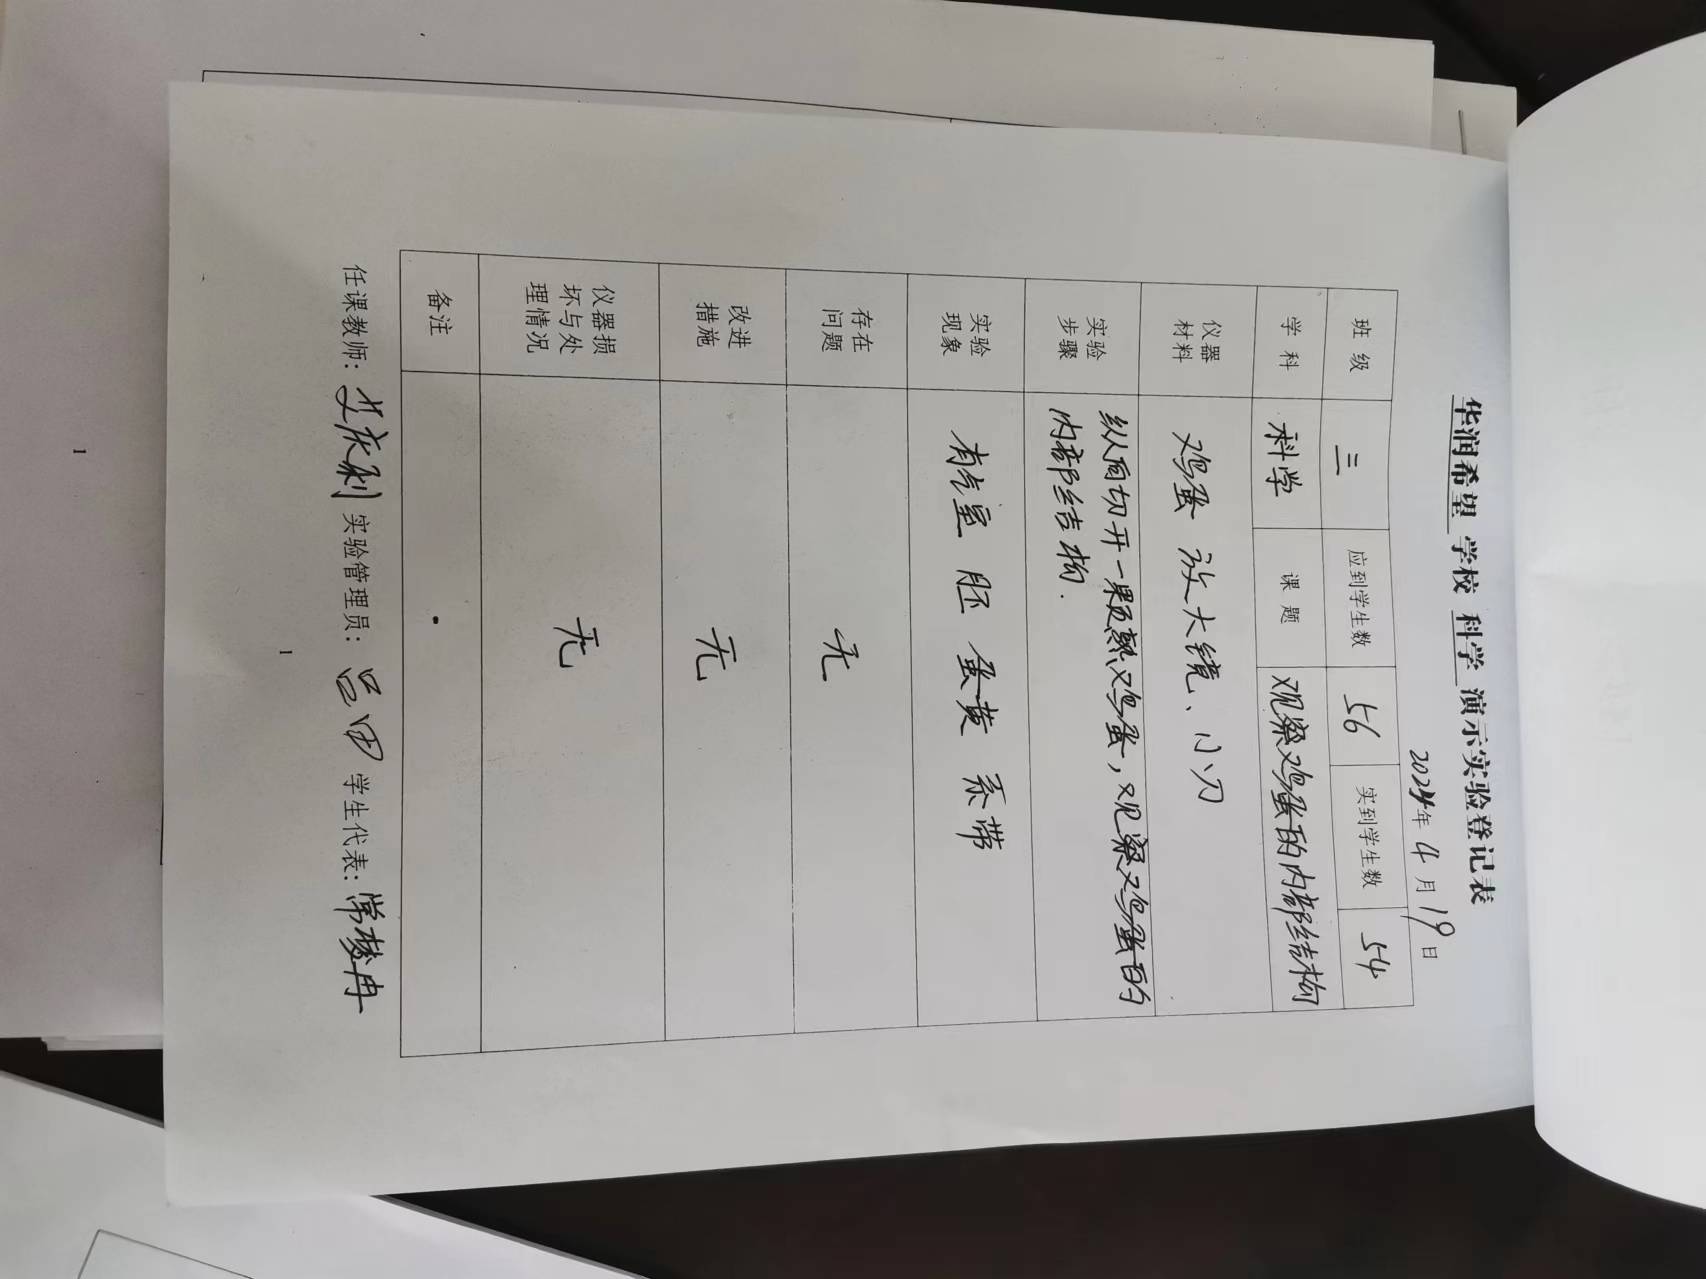 华润希望学校 科学 演示实验登记表
2024年4月19日
班级 三 应到学生数 56 实到学生数 54
学科 科学 课题 观察鸡蛋的内部结构
仪器
材料
鸡蛋 放大镜、小刀
实验
步骤
纵向切开一颗熟鸡蛋,观察鸡蛋的
内部结构.
实验
现象
有气室 胚 蛋黄 系带
存在
问题
无
改进
措施
无
仪器损
坏与处
理情况
无
备注
任课教师: 实验管理员: 吕田 学生代表: 常梦冉
1
1